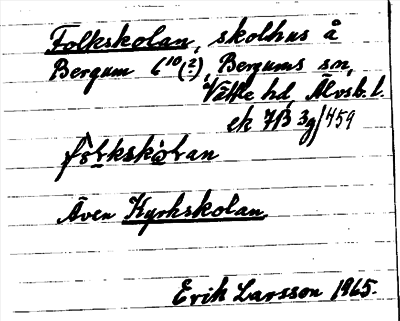 Folkskolan, skolhus å
Bergum 6¹⁰(2), Bergums sn,
Vättle hd, Älvsb. l.
ek 7B 3g/459
fo̲lkskò̲lan
Även Kyrkskolan.
Erik Larsson 1965.